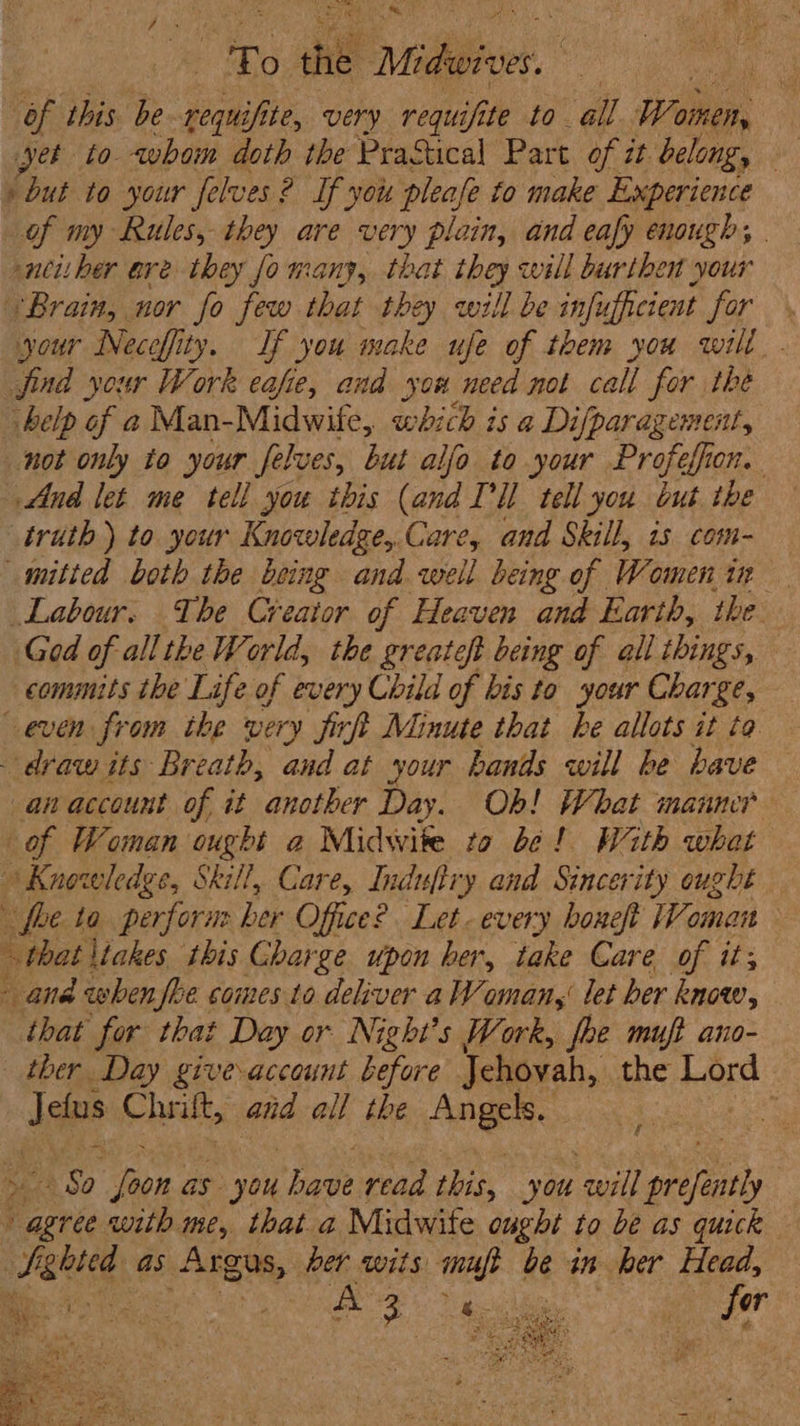 To the Midwives.
of this be requiſite, very requiſite to all Women,
yet to whom doth the Practical Part of it belong,
but to your ſelves? If you pleaſe to make Experience
of my Rules, they are very plain, and eaſy enough;
neither are they ſo many, that they will burthen your
Brain, nor ſo few that they will be inſufficient for
your Neceſſity. If you make uſe of them you will
find your Work eaſie, and you need not call for the
help of a Man-Midwife, which is a Diſparagement,
not only to your ſelves, but alſo to your Profeſſion.
And let me tell you this (and I'll tell you but the
truth) to your Knowledge, Care, and Skill, is com-
mitted both the being and well being of Women in
Labour. The Creator of Heaven and Earth, the
God of all the World, the greateſt being of all things,
commits the Life of every Child of his to your Charge,
even from the very firſt Minute that he allots it to
draw its Breath, and at your hands will he have
an account of it another Day. Oh! What manner
of Woman ought a Midwife to be! With what
Knowledge, Skill, Care, Induſtry and Sincerity ought
ſhe to perform her Office? Let every honeſt Woman
that takes this Charge upon her, take Care of it;
and when ſhe comes to deliver a Woman, let her know,
that for that Day or Night's Work, ſhe muſt ano-
ther Day give account before Jehovah, the Lord
Jeſus Chriſt, and all the Angels.
So ſoon as you have read this, you will preſently
agree with me, that a Midwife ought to be as quick
ſighted as Argus, her wits muſt be in her Head,
A 3 for